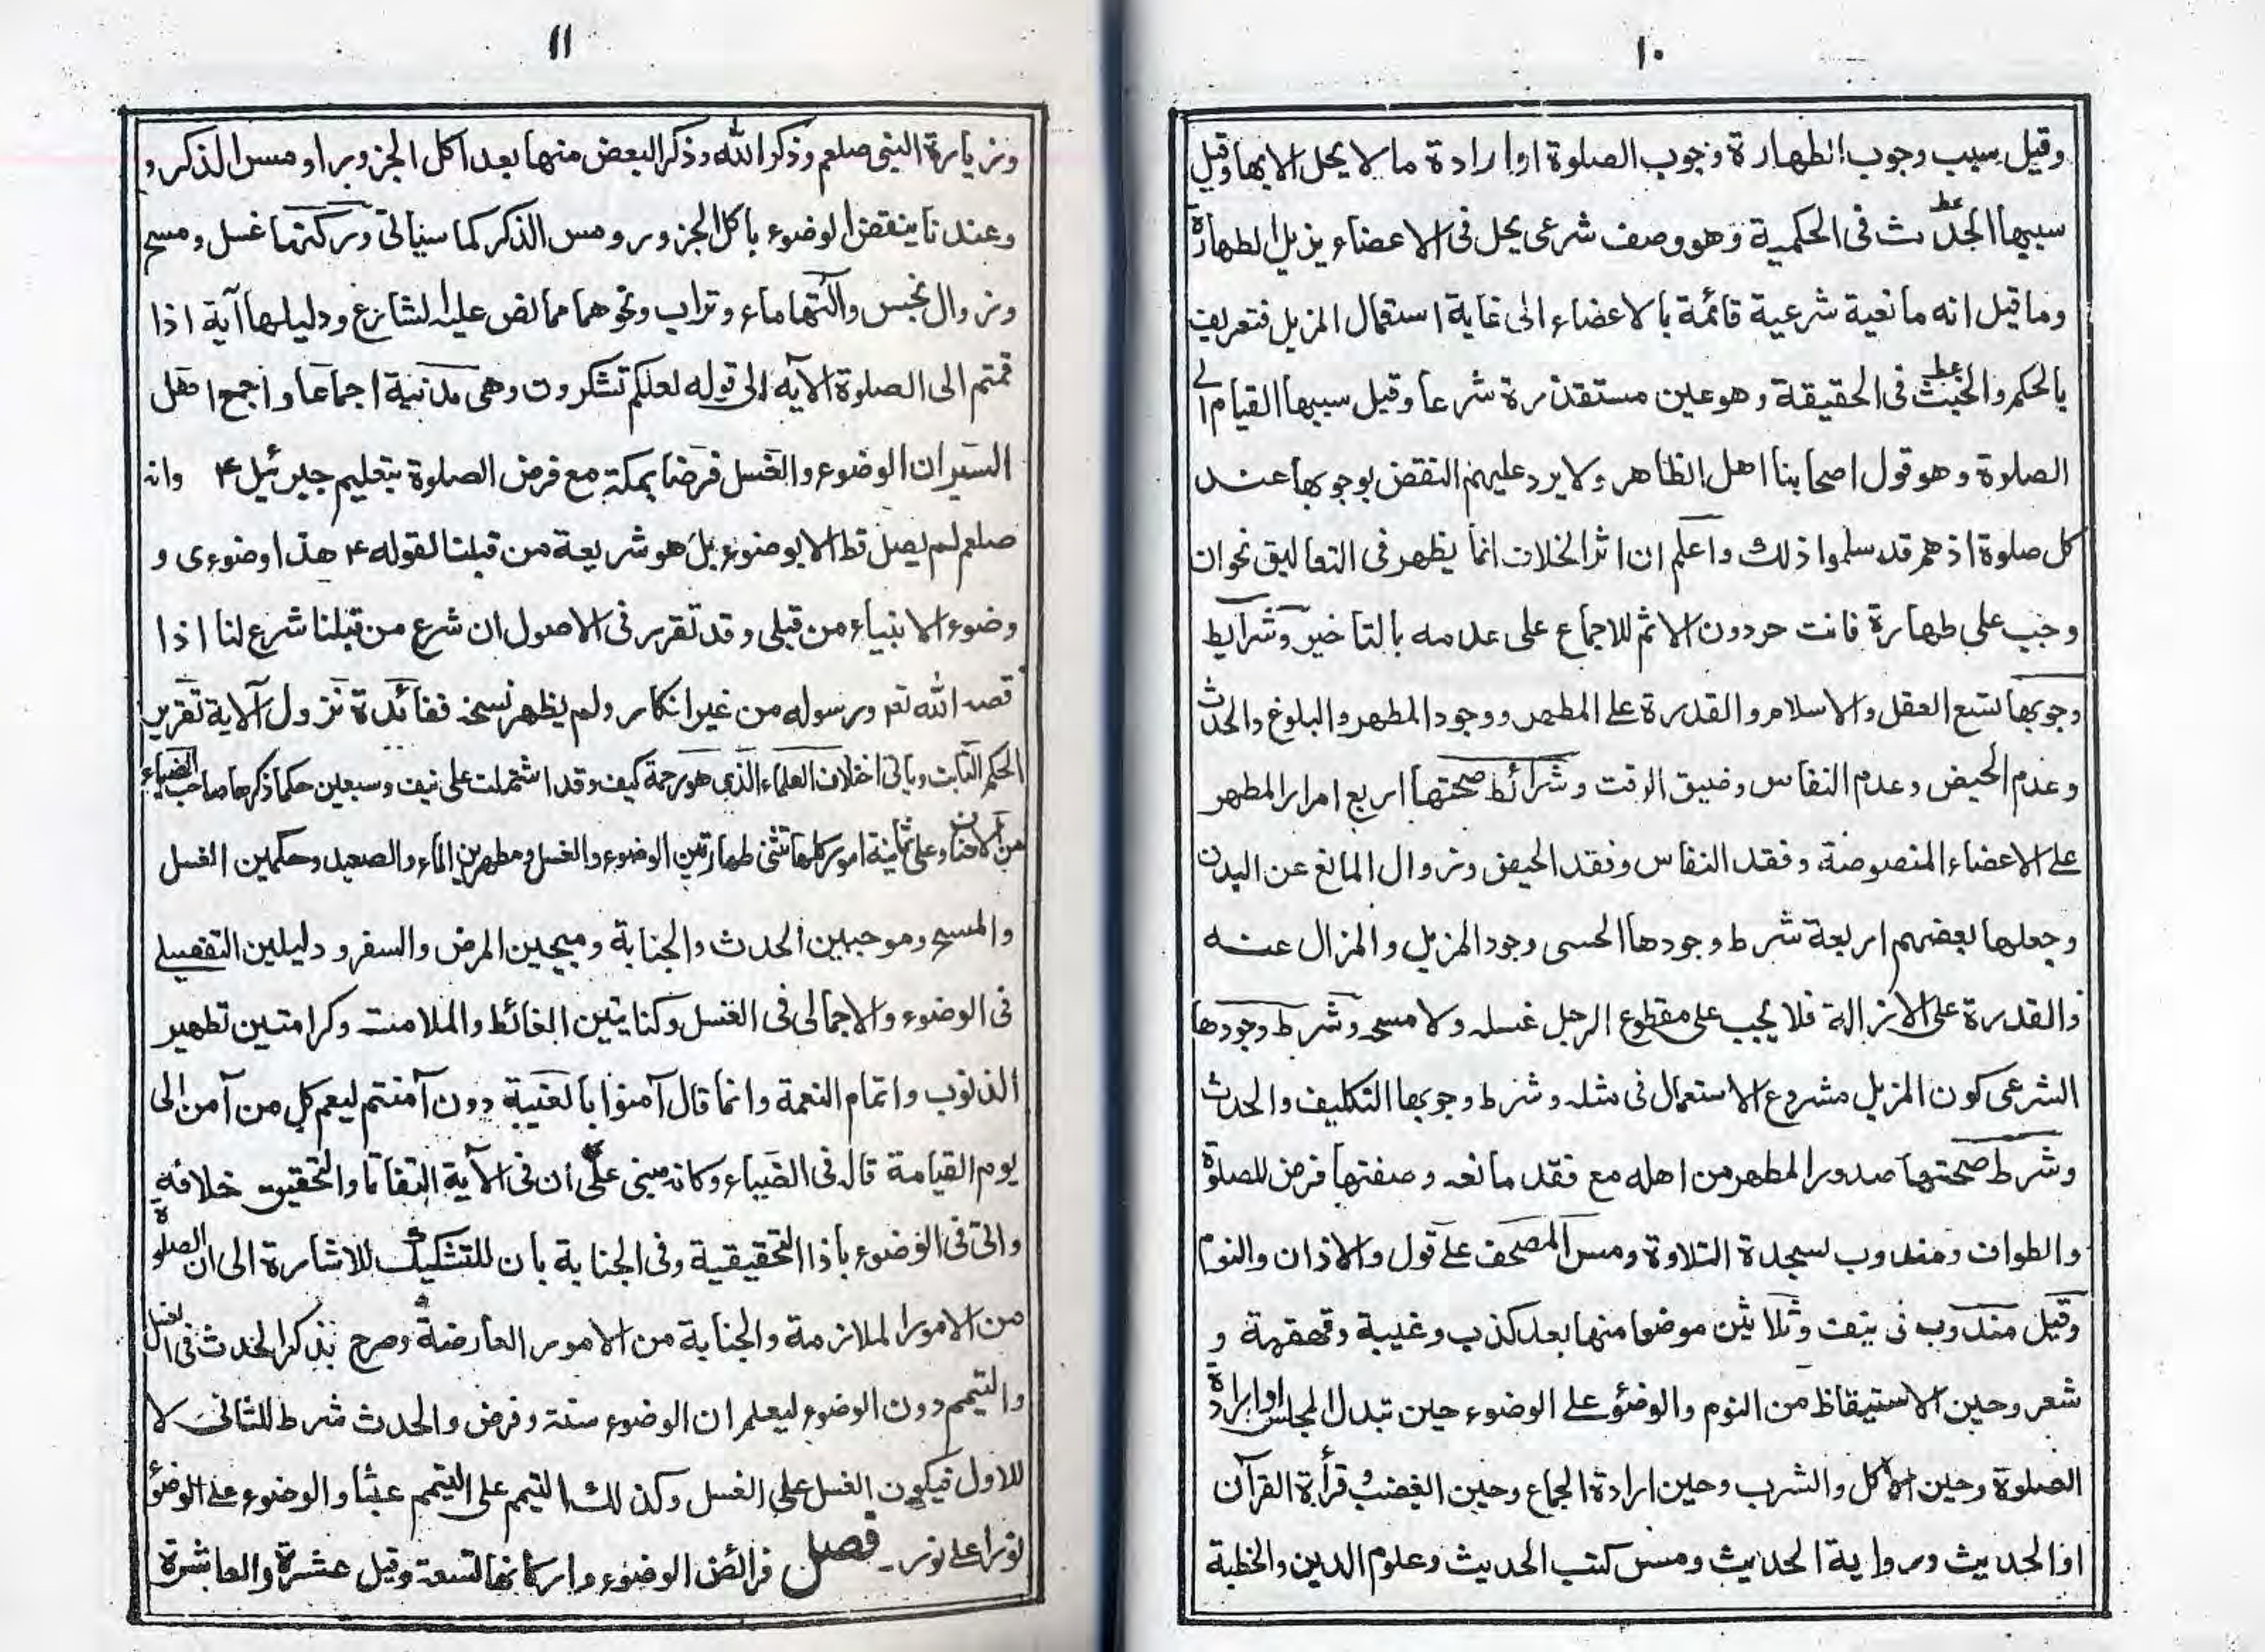 ١٠
وقيل سبب وجوب الطهارة وجوب الصلوة او ارادة ما لا يحل الا بها وقيل
سببها الحدث فى الحكمية وهو وصف شرعى يحل فى الاعضاء يزيل الطهارة
وما قيل انه مانعية شرعية قائمة بالاعضاء الى غاية استعمال المزيل فتعريف
بالحكم والخبث فى الحقيقة وهو عين مستقذرة شرعا وقيل سببها القيام الى
الصلوة وهو قول اصحابنا اهل الظاهر ولا يرد عليهم النقض بوجوبها عند
كل صلوة اذ هم قد سلموا ذلك واعلم ان اثر الخلاف انما يظهر فى التعاليق نحو ان
وجب على طهارة فانت حر دون الاثم للاجماع على عدمه بالتاخير وشرايط
وجوبها تسع العقل والاسلام والقدرة على المطهر ووجود المطهر والبلوغ والحدث
وعدم الحيض وعدم النفاس وضيق الوقت وشرائط صحتها اربع امرار المطهر
على الاعضاء المنصوصة وفقد النفاس وفقد الحيض وزوال المانع عن البدن
وجعلها بعضهم اربعة شرط وجودها الحسى وجود المزيل والمزال عنه
والقدرة على الازالة فلا يجب على مقطوع الرجل غسله ولا مسحه وشرط وجودها
الشرعى كون المزيل مشروع الاستعمال فى مثله وشرط وجوبها التكليف والحدث
وشرط صحتها صدور المطهر من اهله مع فقد مانعه وصفتها فرض للصلوة
والطواف ومندوب لسجدة التلاوة ومس المصحف على قول والاذان والنوم
وقيل مندوب فى نيف وثلاثين موضعا منها بعد كذب وغيبة وقهقهة و
شعر وحين الاستيقاظ من النوم والوضؤ على الوضوء حين تبدل المجلس او ارادة
الصلوة وحين الاكل والشرب وحين ارادة الجماع وحين الغضب قرأة القرآن
او الحديث ورواية الحديث ومس كتب الحديث وعلوم الدين والخطبة
١١
وزيارة النبى صلعم وذكر الله وذكر البعض منها بعد اكل الجزور او مس الذكر و
وعندنا ينقض الوضوء باكل الجزور ومس الذكر كما سياتى وركنها غسل ومسح
وزوال نجس وآلتها ماء وتراب ونحوهما مما نص عليه الشارع ودليلها آية اذا
قمتم الى الصلوة الآيه الى قوله لعلكم تشكرون وهى مدنية اجماعا واجمع اهل
السير ان الوضوء والغسل فرضا بمكة مع فرض الصلوة بتعليم جبرئيل ع وانه
صلعم لم يصل قط الا بوضوء بل هو شريعة من قبلنا لقوله ع هذا وضوءى و
وضوء الانبياء من قبلى وقد تقرر فى الاصول ان شرع من قبلنا شرع لنا اذا
قصه الله تع ورسوله من غير انكار ولم يظهر نسخه ففائدة نزول الآية تقرير
الحكم الثابت وياتى اختلاف العلماء الذى هو رحمة كيف وقد اشتملت على نيف وسبعين حكما ذكرها صاحب الضياء
من الاحناف وعلى ثمانية امور كلها تثنى طهارتين الوضوء والغسل ومطهرين الماء والصعيد وحكمين الغسل
والمسح وموجبين الحدث والجنابة ومبيحين المرض والسفر ودليلين التفصيلى
فى الوضوء والاجمالى فى الغسل وكنايتين الغائط والملامسة وكرامتين تطهير
الذنوب واتمام النعمة وانما قال آمنوا بالغيبة دون آمنتم ليعم كل من آمن الى
يوم القيامة قاله فى الضياء وكانه مبنى على ان فى الآية التفاتا والتحقيق خلافه
واتى فى الوضوء باذا التحقيقية وفى الجنابة بان للتشكيك للاشارة الى ان الصلوة
من الامور الملازمة والجنابة من الامور العارضة وصرح بذكر الحدث فى الغسل
والتيمم دون الوضوء ليعلم ان الوضوء سنة وفرض والحدث شرط للثانى لا
للاول فيكون الغسل على الغسل وكذلك التيمم على التيمم عبثا والوضوء على الوضؤ
نورا على نور۔ فصل فرائض الوضوء واركانها تسعة وقيل عشرة والعاشرة